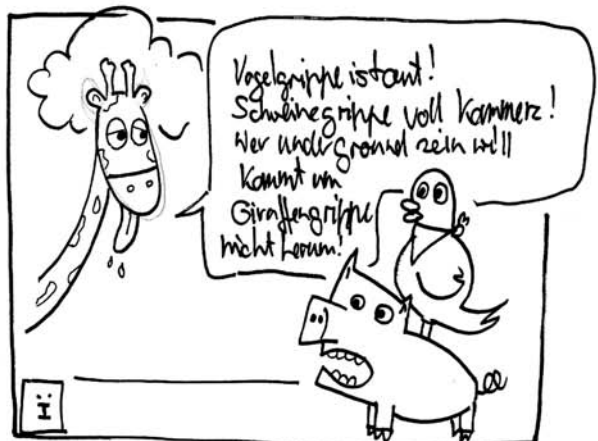 Vogelgrippe ist out!
Schweinegrippe voll Kommerz!
Wer underground sein will
kommt um
Giraffengrippe
nicht herum!
Ï